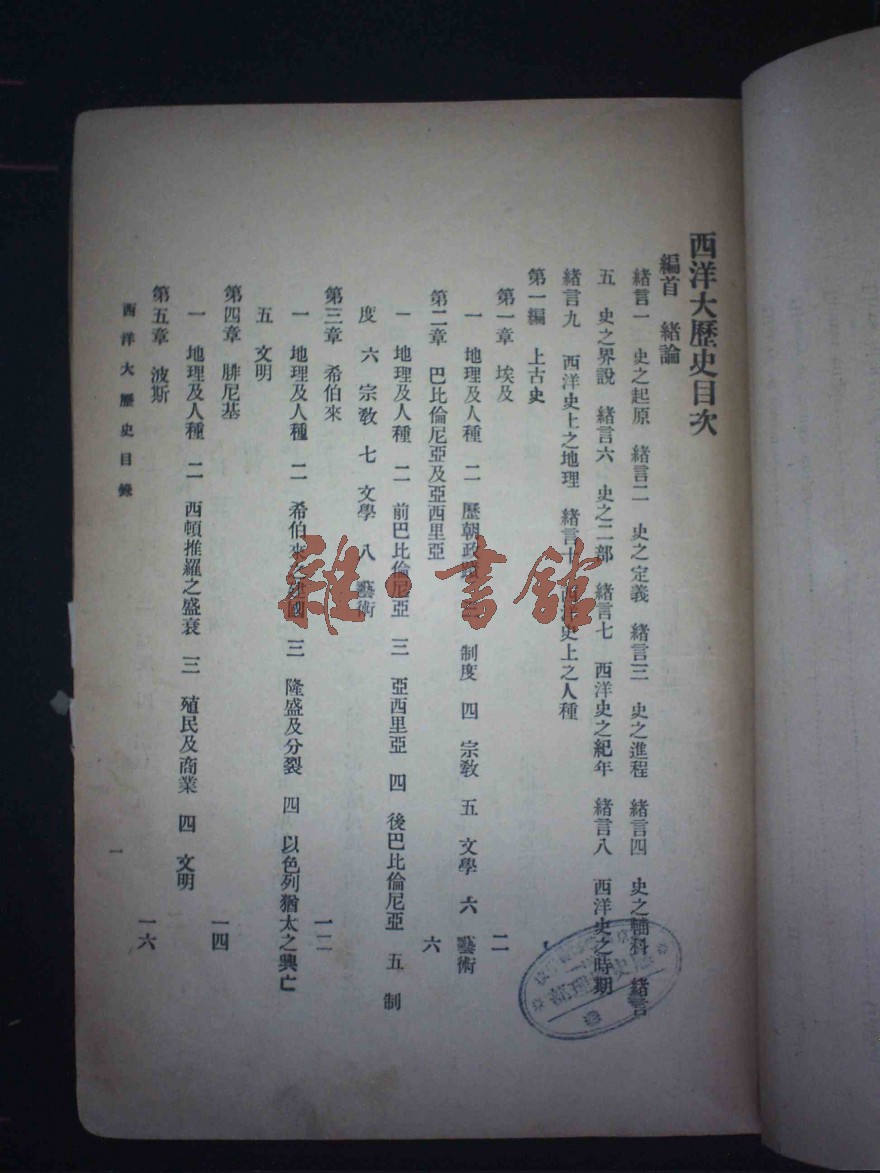 西洋大歷史目次
編首　緒論
緒言一　史之起原　緒言二　史之定義　緒言三　史之進程　緒言四　史之輔科　緒言
五　史之界說　緒言六　史之二部　緒言七　西洋史之紀年　緒言八　西洋史之時期
緒言九　西洋史上之地理　緒言十　西洋史上之人種
第一編　上古史
第一章　埃及　二
一　地理及人種　二　歷朝政　三　制度　四　宗敎　五　文學　六　藝術
第二章　巴比倫尼亞及亞西里亞　六
一　地理及人種　二　前巴比倫尼亞　三　亞西里亞　四　後巴比倫尼亞　五　制
度　六　宗敎　七　文學　八　藝術
第三章　希伯來　一二
一　地理及人種　二　希伯來之建國　三　隆盛及分裂　四　以色列猶太之興亡
五　文明
第四章　腓尼基　一四
一　地理及人種　二　西頓推羅之盛衰　三　殖民及商業　四　文明
第五章　波斯　一六
西洋大歷史目錄
一
雜·書館